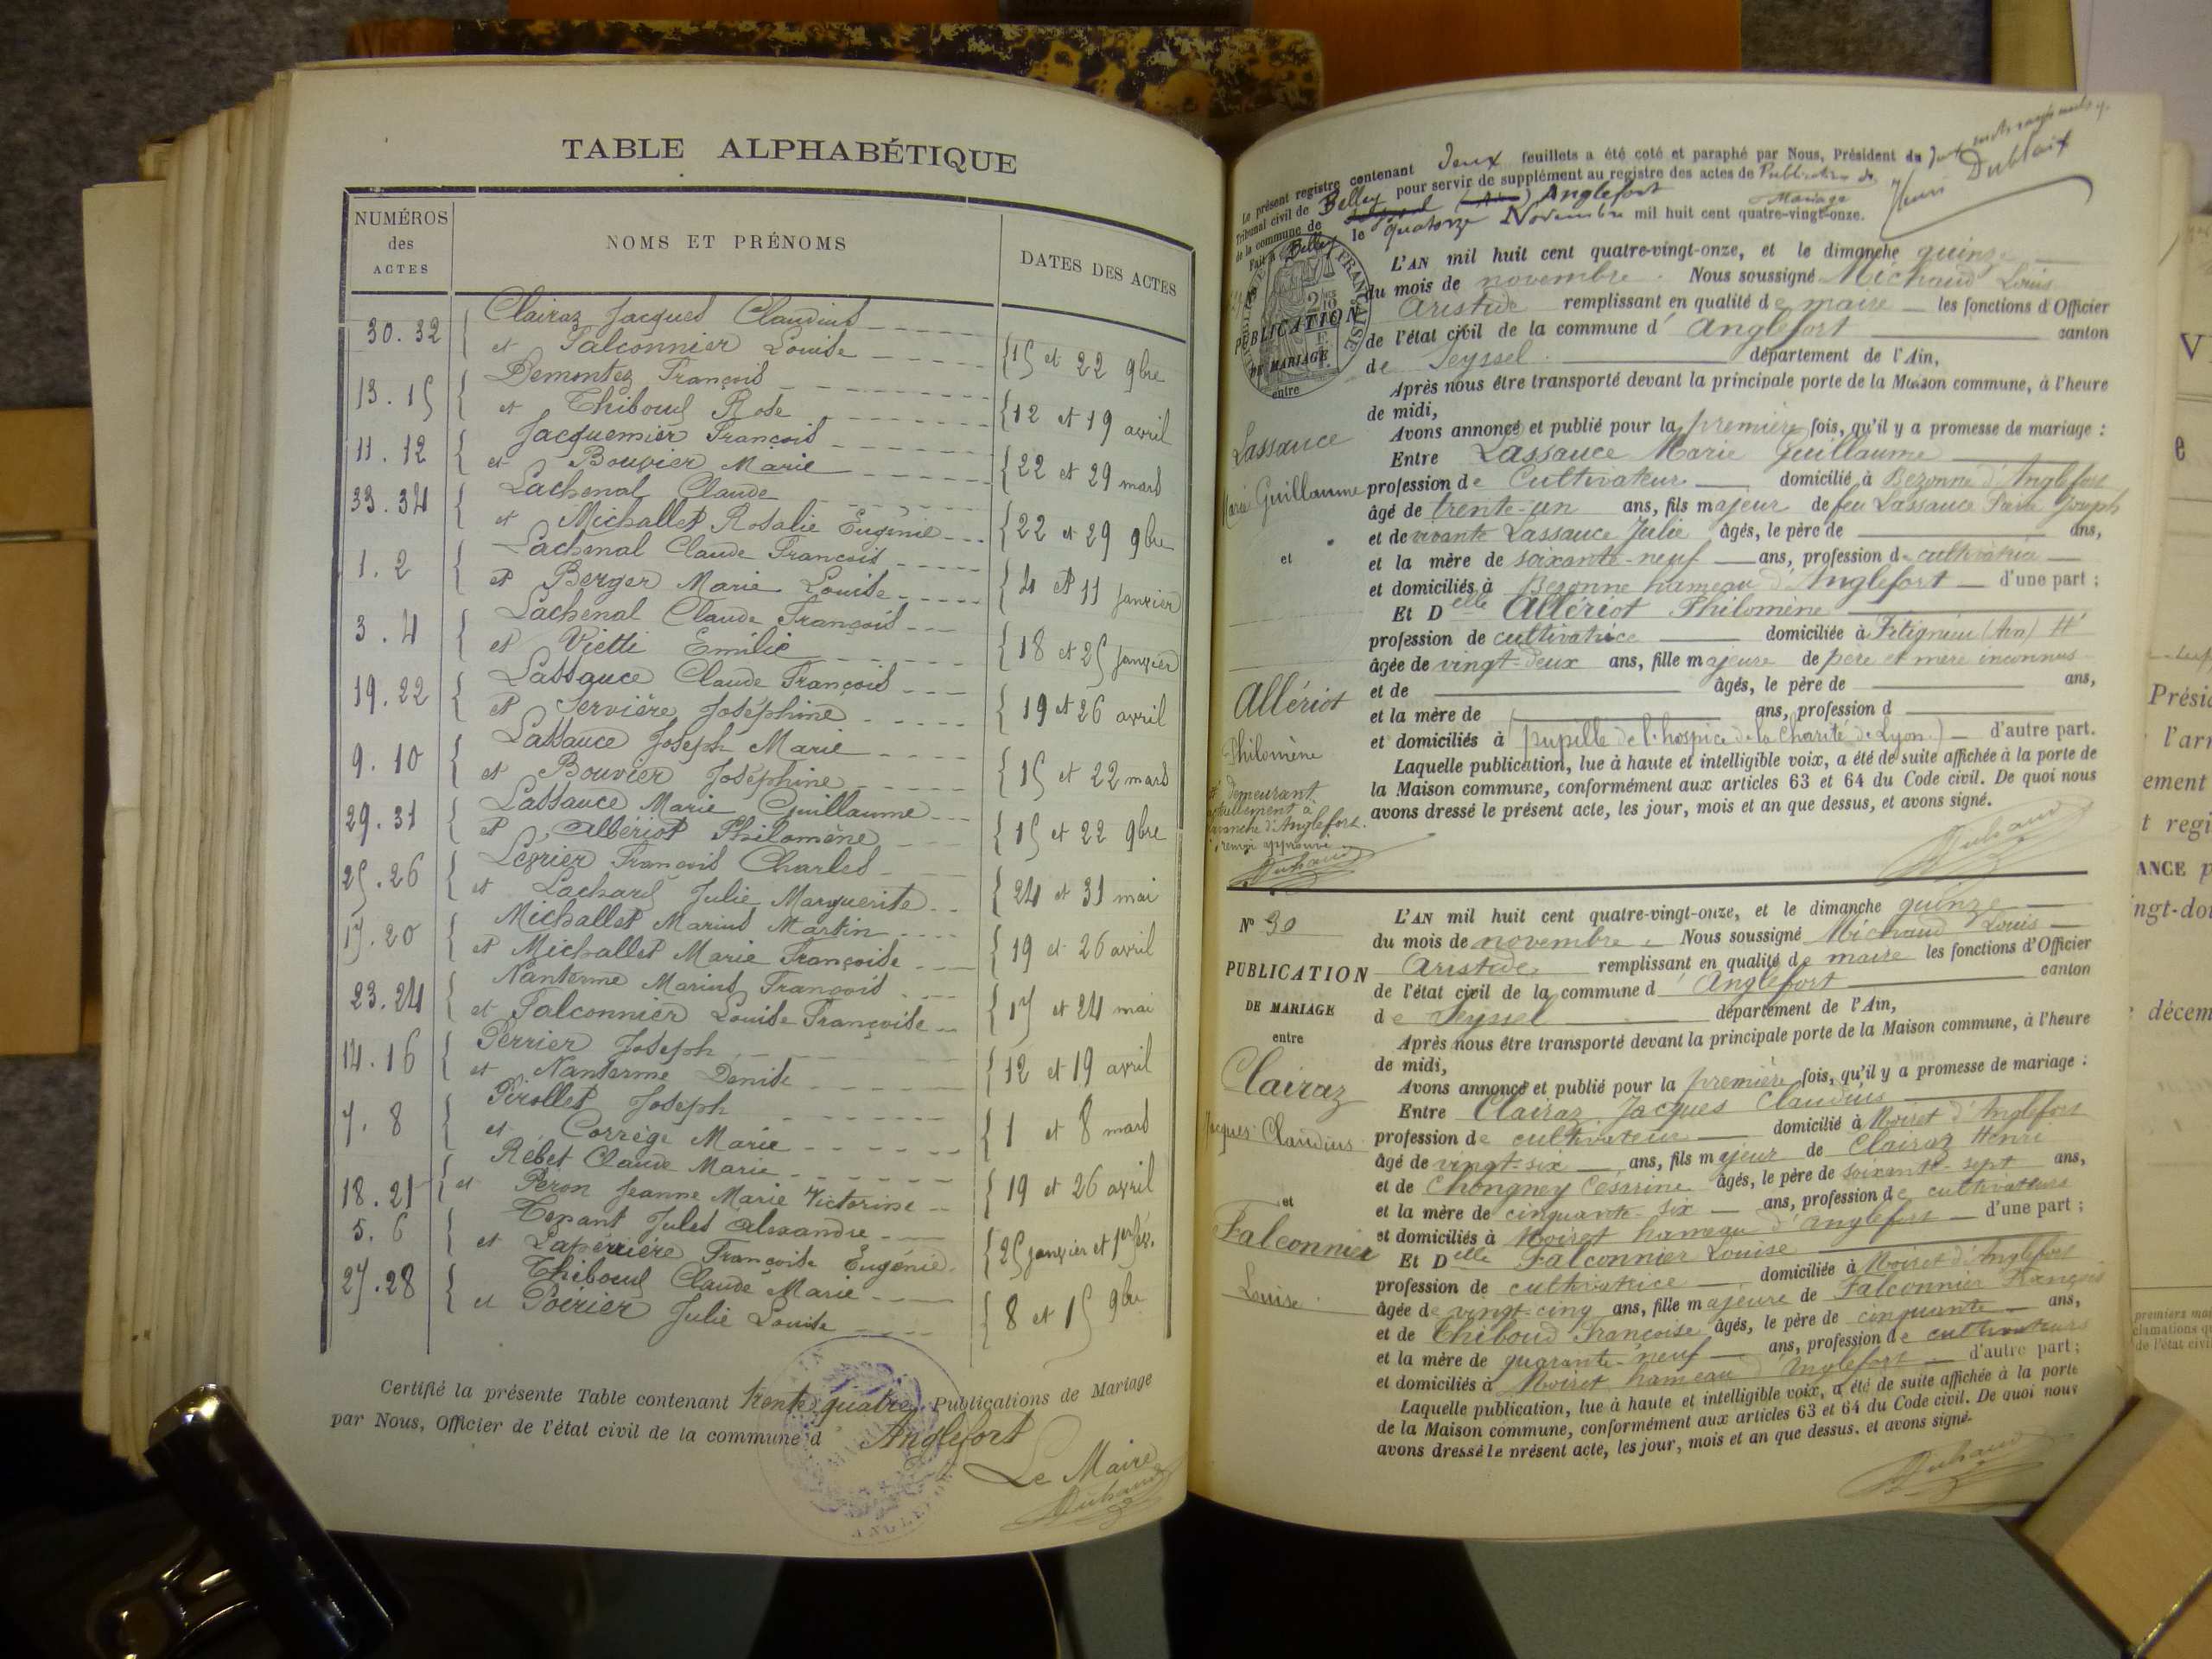 TABLE ALPHABÉTIQUE
NUMÉROS des ACTES
NOMS ET PRÉNOMS
DATES DES ACTES
30.32 { Clairaz Jacques Claudius
et Falconnier Louise {15 et 22 9bre
13.15 { Demontez François
et Thiboud Rose {12 et 19 avril
11.12 { Jacquemier François
et Bouvier Marie {22 et 29 mars
33.34 { Lachenal Claude
et Michallet Rosalie Eugénie {22 et 29 9bre
1.2 { Lachenal Claude François
et Berger Marie Louise {4 et 11 janvier
3.4 { Lachenal Claude François
et Vietti Emilie {18 et 25 janvier
19.22 { Lassauce Claude François
et Servière Joséphine {19 et 26 avril
9.10 { Lassauce Joseph Marie
et Bouvier Joséphine {15 et 22 mars
29.31 { Lassauce Marie Guillaume
et Allériot Philomène {15 et 22 9bre
25.26 { François Charles
et Lachard Julie Marguerite {24 et 31 mai
17.20 { Michallet Marius Martin
et Michallet Marie Françoise {19 et 26 avril
23.24 { Nanterme Marius François
et Falconnier Louise Françoise {17 et 24 mai
14.16 { Perrier Joseph
et Nanterme Denise {12 et 19 avril
7.8 { Pirollet Joseph
et Corrège Marie {1 et 8 mars
18.21 { Rebet Claude Marie
et Peron Jeanne Marie Victorine {19 et 26 avril
5.6 { Tenant Jules Alexandre
et Laperrière Françoise Eugénie {25 janvier et 1er
27.28 { Thiboud Claude Marie
et Poirier Julie Louise {8 et 15 9bre
Certifié la présente Table contenant trente quatre Publications de Mariage
par Nous, Officier de l'état civil de la commune d Anglefort
Le Maire
Michaud
Le présent registre contenant deux feuillets a été coté et paraphé par Nous, Président du
Tribunal civil de Belley pour servir de supplément au registre des actes de Publication de Mariage
de la commune de Anglefort
Fait à Belley le quatorze Novembre mil huit cent quatre-vingt-onze.
PUBLICATION
DE MARIAGE
entre
Lassauce
Marie Guillaume
et
Allériot
Philomène
demeurant
actuellement à
d'Anglefort.
renvoi approuvé
Michaud
L'AN mil huit cent quatre-vingt-onze, et le dimanche quinze
du mois de novembre. Nous soussigné Michaud Louis
Aristide remplissant en qualité de maire les fonctions d'Officier
de l'état civil de la commune d' Anglefort canton
de Seyssel département de l'Ain,
Après nous être transporté devant la principale porte de la Maison commune, à l'heure
de midi,
Avons annoncé et publié pour la première fois, qu'il y a promesse de mariage :
Entre Lassauce Marie Guillaume
profession de Cultivateur domicilié à Bezonne d'Anglefort
âgé de trente-un ans, fils majeur de feu Lassauce Joseph
et de vivante Lassauce Julie âgés, le père de ans,
et la mère de soixante-neuf ans, profession de cultivatrice
et domiciliés à Bezonne hameau d'Anglefort d'une part ;
Et Delle Allériot Philomène
profession de cultivatrice domiciliée à Fitignieu (Ain)
âgée de vingt-deux ans, fille majeure de père et mère inconnus
et de âgés, le père de ans,
et la mère de ans, profession d
et domiciliés à (pupille de l'hospice de la Charité de Lyon) d'autre part.
Laquelle publication, lue à haute et intelligible voix, a été de suite affichée à la porte de
la Maison commune, conformément aux articles 63 et 64 du Code civil. De quoi nous
avons dressé le présent acte, les jour, mois et an que dessus, et avons signé.
Michaud
N° 30
PUBLICATION
DE MARIAGE
entre
Clairaz
Jacques Claudius
et
Falconnier
Louise
L'AN mil huit cent quatre-vingt-onze, et le dimanche quinze
du mois de novembre. Nous soussigné Michaud Louis
Aristide remplissant en qualité de maire les fonctions d'Officier
de l'état civil de la commune d Anglefort canton
de Seyssel département de l'Ain,
Après nous être transporté devant la principale porte de la Maison commune, à l'heure
de midi,
Avons annoncé et publié pour la première fois, qu'il y a promesse de mariage :
Entre Clairaz Jacques Claudius
profession de cultivateur domicilié à Moiret d'Anglefort
âgé de vingt-six ans, fils majeur de Clairaz Henri
et de Chongney Césarine âgés, le père de soixante-sept ans,
et la mère de cinquante-six ans, profession de cultivateurs
et domiciliés à Moiret hameau d'Anglefort d'une part ;
Et Delle Falconnier Louise
profession de cultivatrice domiciliée à Moiret d'Anglefort
âgée de vingt-cinq ans, fille majeure de Falconnier François
et de Thiboud Françoise âgés, le père de cinquante ans,
et la mère de quarante-neuf ans, profession de cultivateurs
et domiciliés à Moiret hameau d'Anglefort d'autre part ;
Laquelle publication, lue à haute et intelligible voix, a été de suite affichée à la porte
de la Maison commune, conformément aux articles 63 et 64 du Code civil. De quoi nous
avons dressé le présent acte, les jour, mois et an que dessus, et avons signé.
Michaud